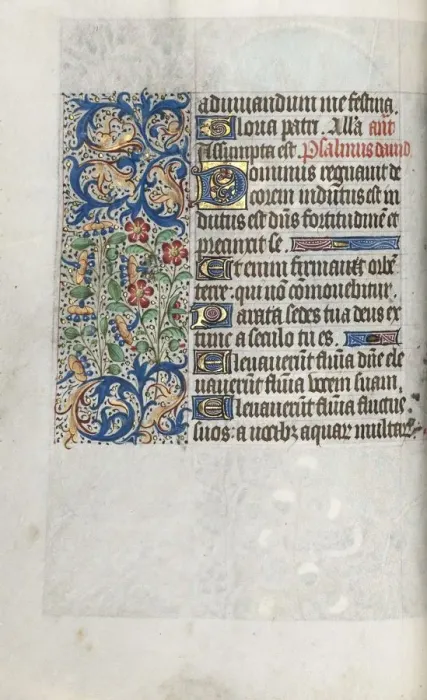 adiuuandum me festina.
Gloria patri. Alla ant
Assumpta est. Psalmus dauid
Dominus regnauit de
corem indutus est in
dutus est dn̄s fortitudinē et
precinxit se.
Etenim firmauit orbē
terre: qui nō cōmouebitur.
Parata sedes tua deus ex
tunc a seculo tu es.
Eleuauerūt flumina dn̄e ele
uauerūt flumina vocem suam.
Eleuauerūt flumina fluctus
suos: a vocibꝫ aquarꝫ multarꝫ.